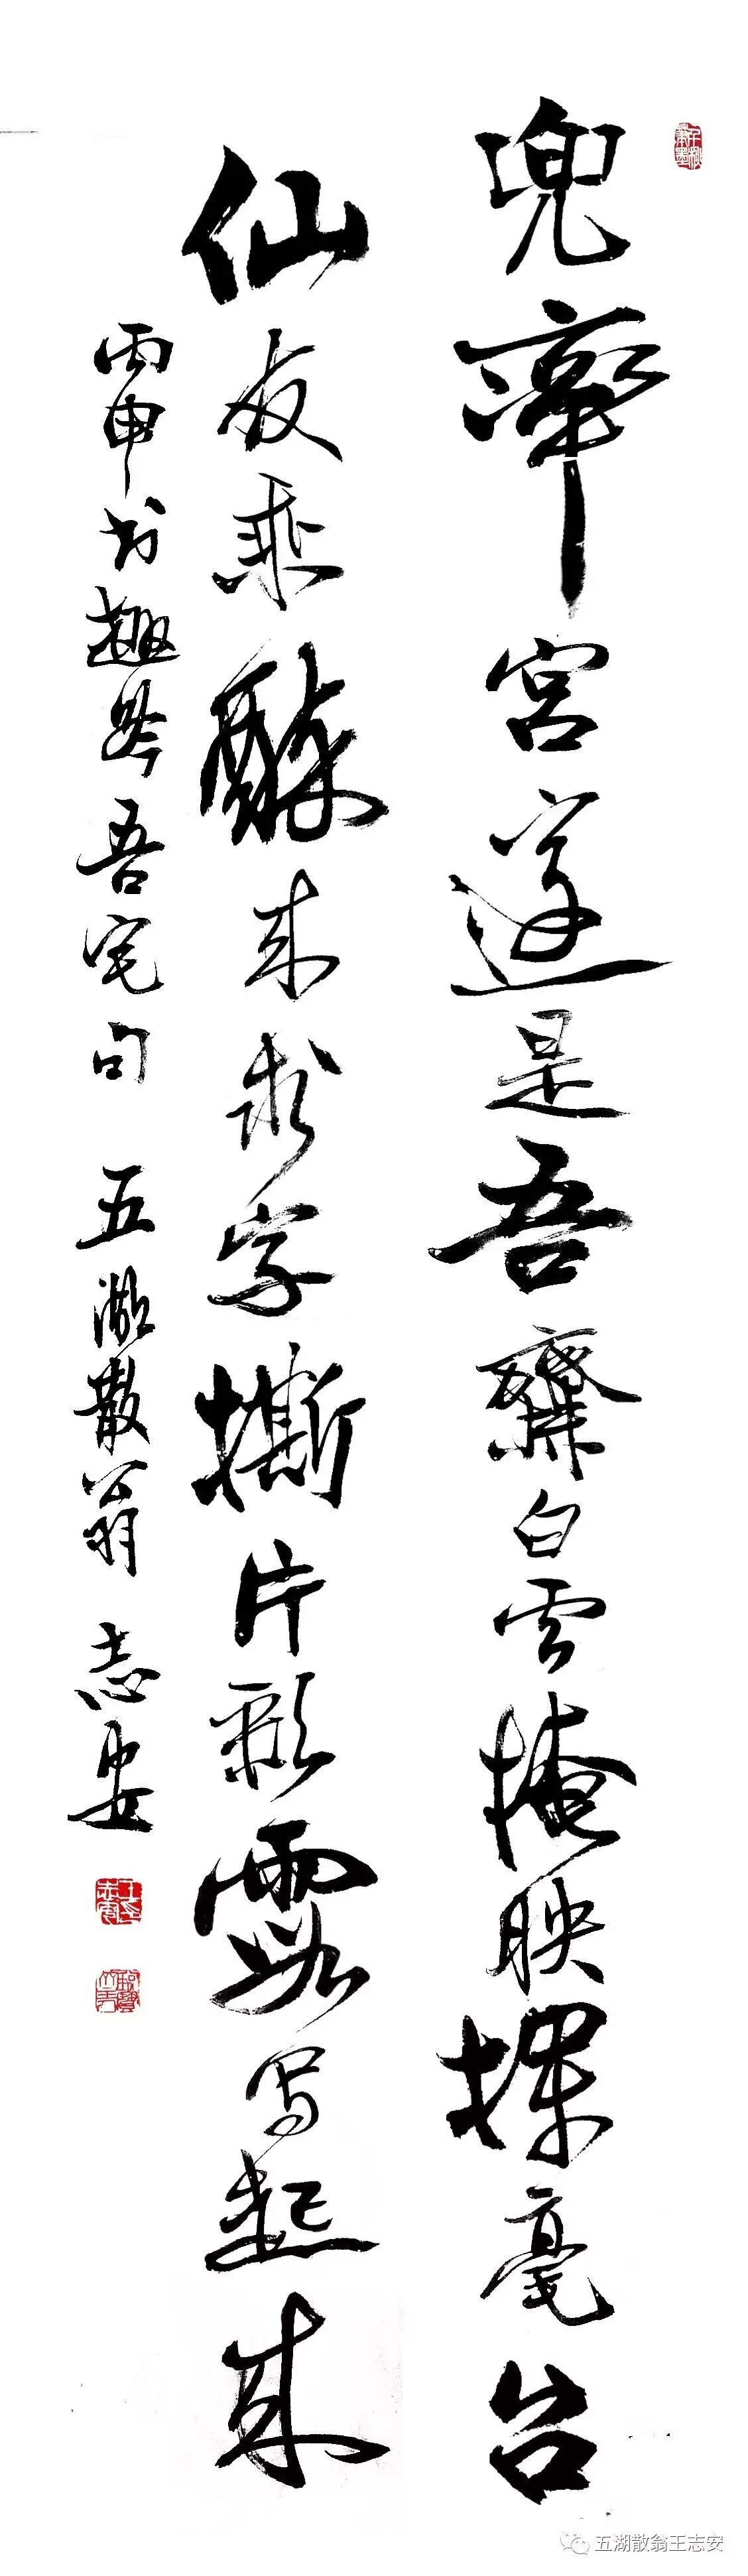 兜率宫遂是吾齋白云掩映揮毫台
仙友乘醉来求字撕片彩霞写起来
丙申书趣吟吾宅句 五湖散翁 志安
五湖散翁王志安